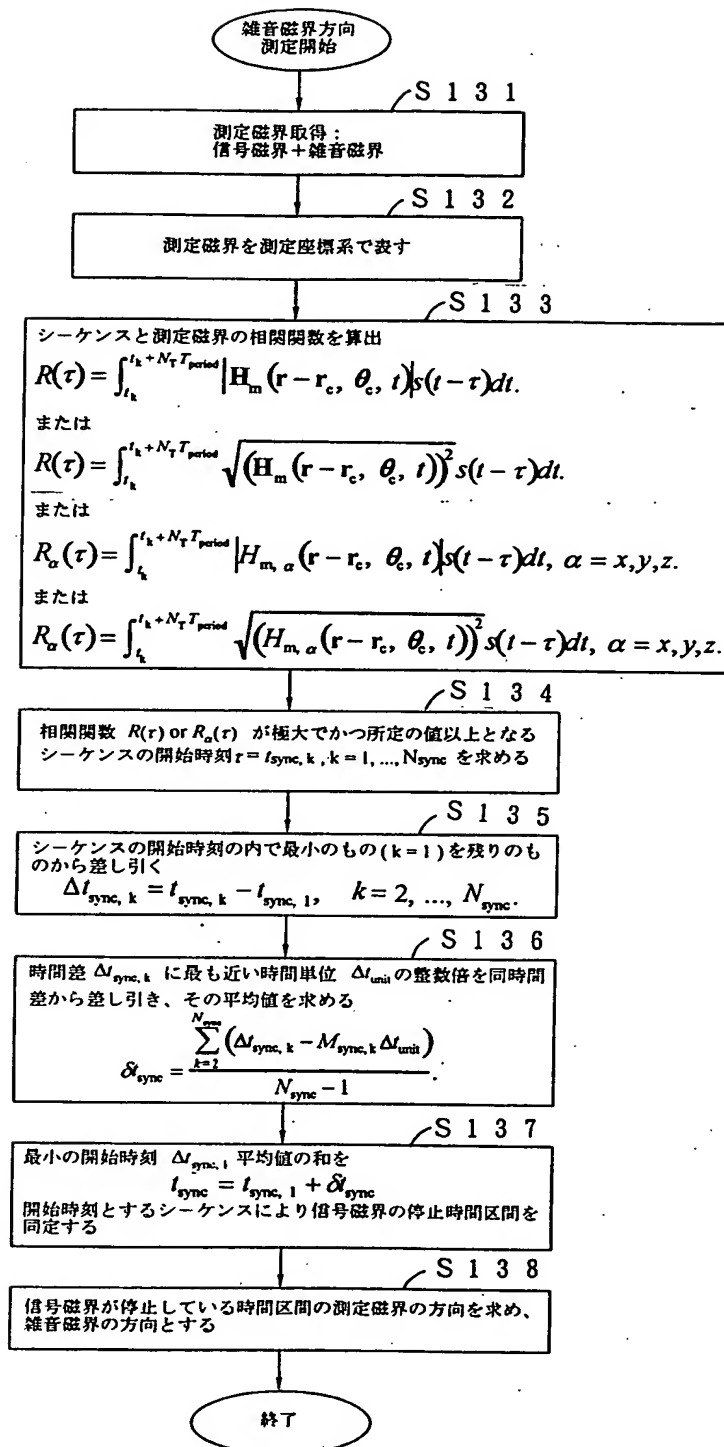 雑音磁界方向
測定開始
S 1 3 1
測定磁界取得：
信号磁界＋雑音磁界
S 1 3 2
測定磁界を測定座標系で表す
S 1 3 3
シーケンスと測定磁界の相関関数を算出
R(τ) = ∫_{t_k}^{t_k + N_T T_period} |H_m (r − r_c, θ_c, t)| s(t − τ)dt.
または
R(τ) = ∫_{t_k}^{t_k + N_T T_period} √((H_m (r − r_c, θ_c, t))^2) s(t − τ)dt.
または
R_α(τ) = ∫_{t_k}^{t_k + N_T T_period} |H_{m, α} (r − r_c, θ_c, t)| s(t − τ)dt, α = x,y,z.
または
R_α(τ) = ∫_{t_k}^{t_k + N_T T_period} √((H_{m, α} (r − r_c, θ_c, t))^2) s(t − τ)dt, α = x,y,z.
S 1 3 4
相関関数 R(τ) or R_α(τ) が極大でかつ所定の値以上となる
シーケンスの開始時刻 τ = t_{sync, k} , k = 1, ..., N_sync を求める
S 1 3 5
シーケンスの開始時刻の内で最小のもの( k = 1 ) を残りのも
のから差し引く
Δt_{sync, k} = t_{sync, k} − t_{sync, 1}, k = 2, ..., N_sync.
S 1 3 6
時間差 Δt_{sync, k} に最も近い時間単位 Δt_unit の整数倍を同時間
差から差し引き、その平均値を求める
δt_sync = Σ_{k=2}^{N_sync} (Δt_{sync, k} − M_{sync, k} Δt_unit) / (N_sync − 1).
S 1 3 7
最小の開始時刻 Δt_{sync, 1} 平均値の和を
t_sync = t_{sync, 1} + δt_sync
開始時刻とするシーケンスにより信号磁界の停止時間区間を
同定する
S 1 3 8
信号磁界が停止している時間区間の測定磁界の方向を求め、
雑音磁界の方向とする
終了